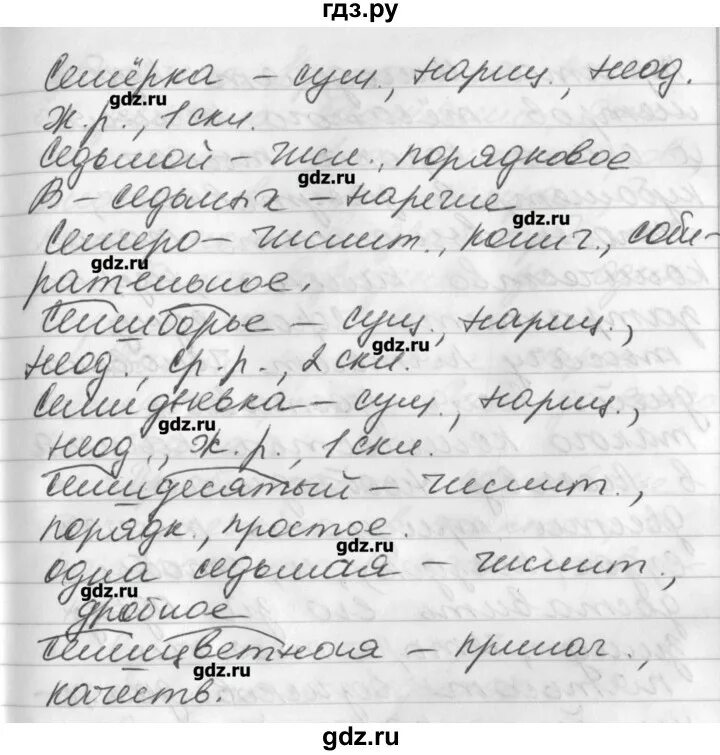 гдз.ру
Семёрка – сущ., нариц., неод.
gdz.ru
ж.р., 1 скл.
Седьмой – числ., порядковое
gdz.ru
В-седьмых – наречие
gdz.ru
Семеро – числит., колич., соби-
gdz.ru
рательное.
Семиборье – сущ., нариц.,
gdz.ru
неод., ср.р., 2 скл.
Семидневка – сущ., нариц.,
gdz.ru
неод., ж.р., 1 скл.
Семидесятый – числит.,
gdz.ru
порядк., простое.
gdz.ru
одна седьмая – числит.,
gdz.ru
дробное
Семицветная – прилаг.,
gdz.ru
качеств.
gdz.ru